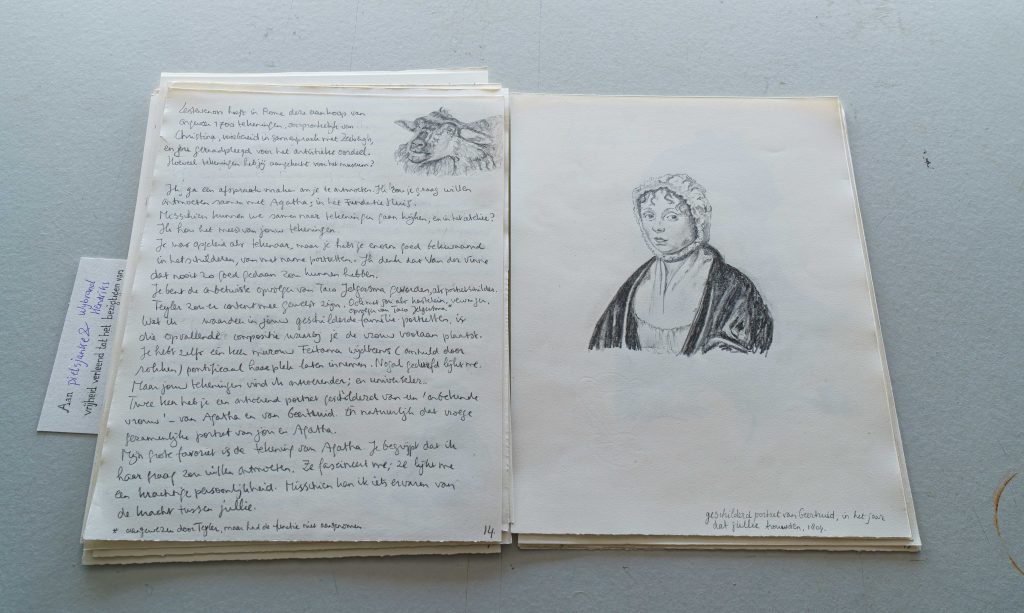 Lestevenon heeft in Rome deze aankoop van
ongeveer 1700 tekeningen, oorspronkelijk van
Christina, voorbereid in samenspraak met
en jou geraadpleegd voor het artistieke oordeel.
Hoeveel tekeningen heb jij aangekocht voor het museum?
Ik ga een afspraak maken om je te ontmoeten. Ik zou je graag willen
ontmoeten samen met Agatha, in het Fundatie Huis.
Misschien kunnen we samen naar tekeningen gaan kijken, en in het atelier?
Ik hou het meest van jouw tekeningen.
Je was opgeleid als tekenaar, maar je hebt je enorm goed bekwaamd
in het schilderen, van met name portretten. Ik denk dat Van der Vinne
dat nooit zo goed gedaan zou kunnen hebben.
Je bent de onbetwiste opvolger van Taco Jelgersma geworden, als portretschilder.
Teyler zou er content mee geweest zijn.
opvolger van Taco Jelgersma
Wat ik waarden in jouw geschilderde familie portretten, is
die opvallende compositie waarbij je de vrouw vooraan plaatst.
Je hebt zelfs een keer mevrouw Feitama
rokken) pontificaal haar plek laten innemen. Nogal gedurfd lijkt me.
Maar jouw tekeningen vind ik ontroerender, en universeler.
Twee keer heb je een ontroerend portret geschilderd van een 'onbekende
vrouw' – van Agatha en van Geertruid. En natuurlijk dat vroege
gezamenlijke portret van jou en Agatha.
Mijn grote favoriet is de tekening van Agatha. Je begrijpt dat ik
haar graag zou willen ontmoeten. Ze fascineert me; ze lijkt me
een krachtige persoonlijkheid. Misschien kan ik iets ervaren van
de kracht tussen jullie.
* aangewezen door Teyler, maar had de functie niet aangenomen
14
Aan Pietsjanke & Wybrand
Hendriks
vrijheid verleend tot het bezigtigen van
geschilderd portret van Geertruid, in het jaar
dat jullie trouwden, 1804.